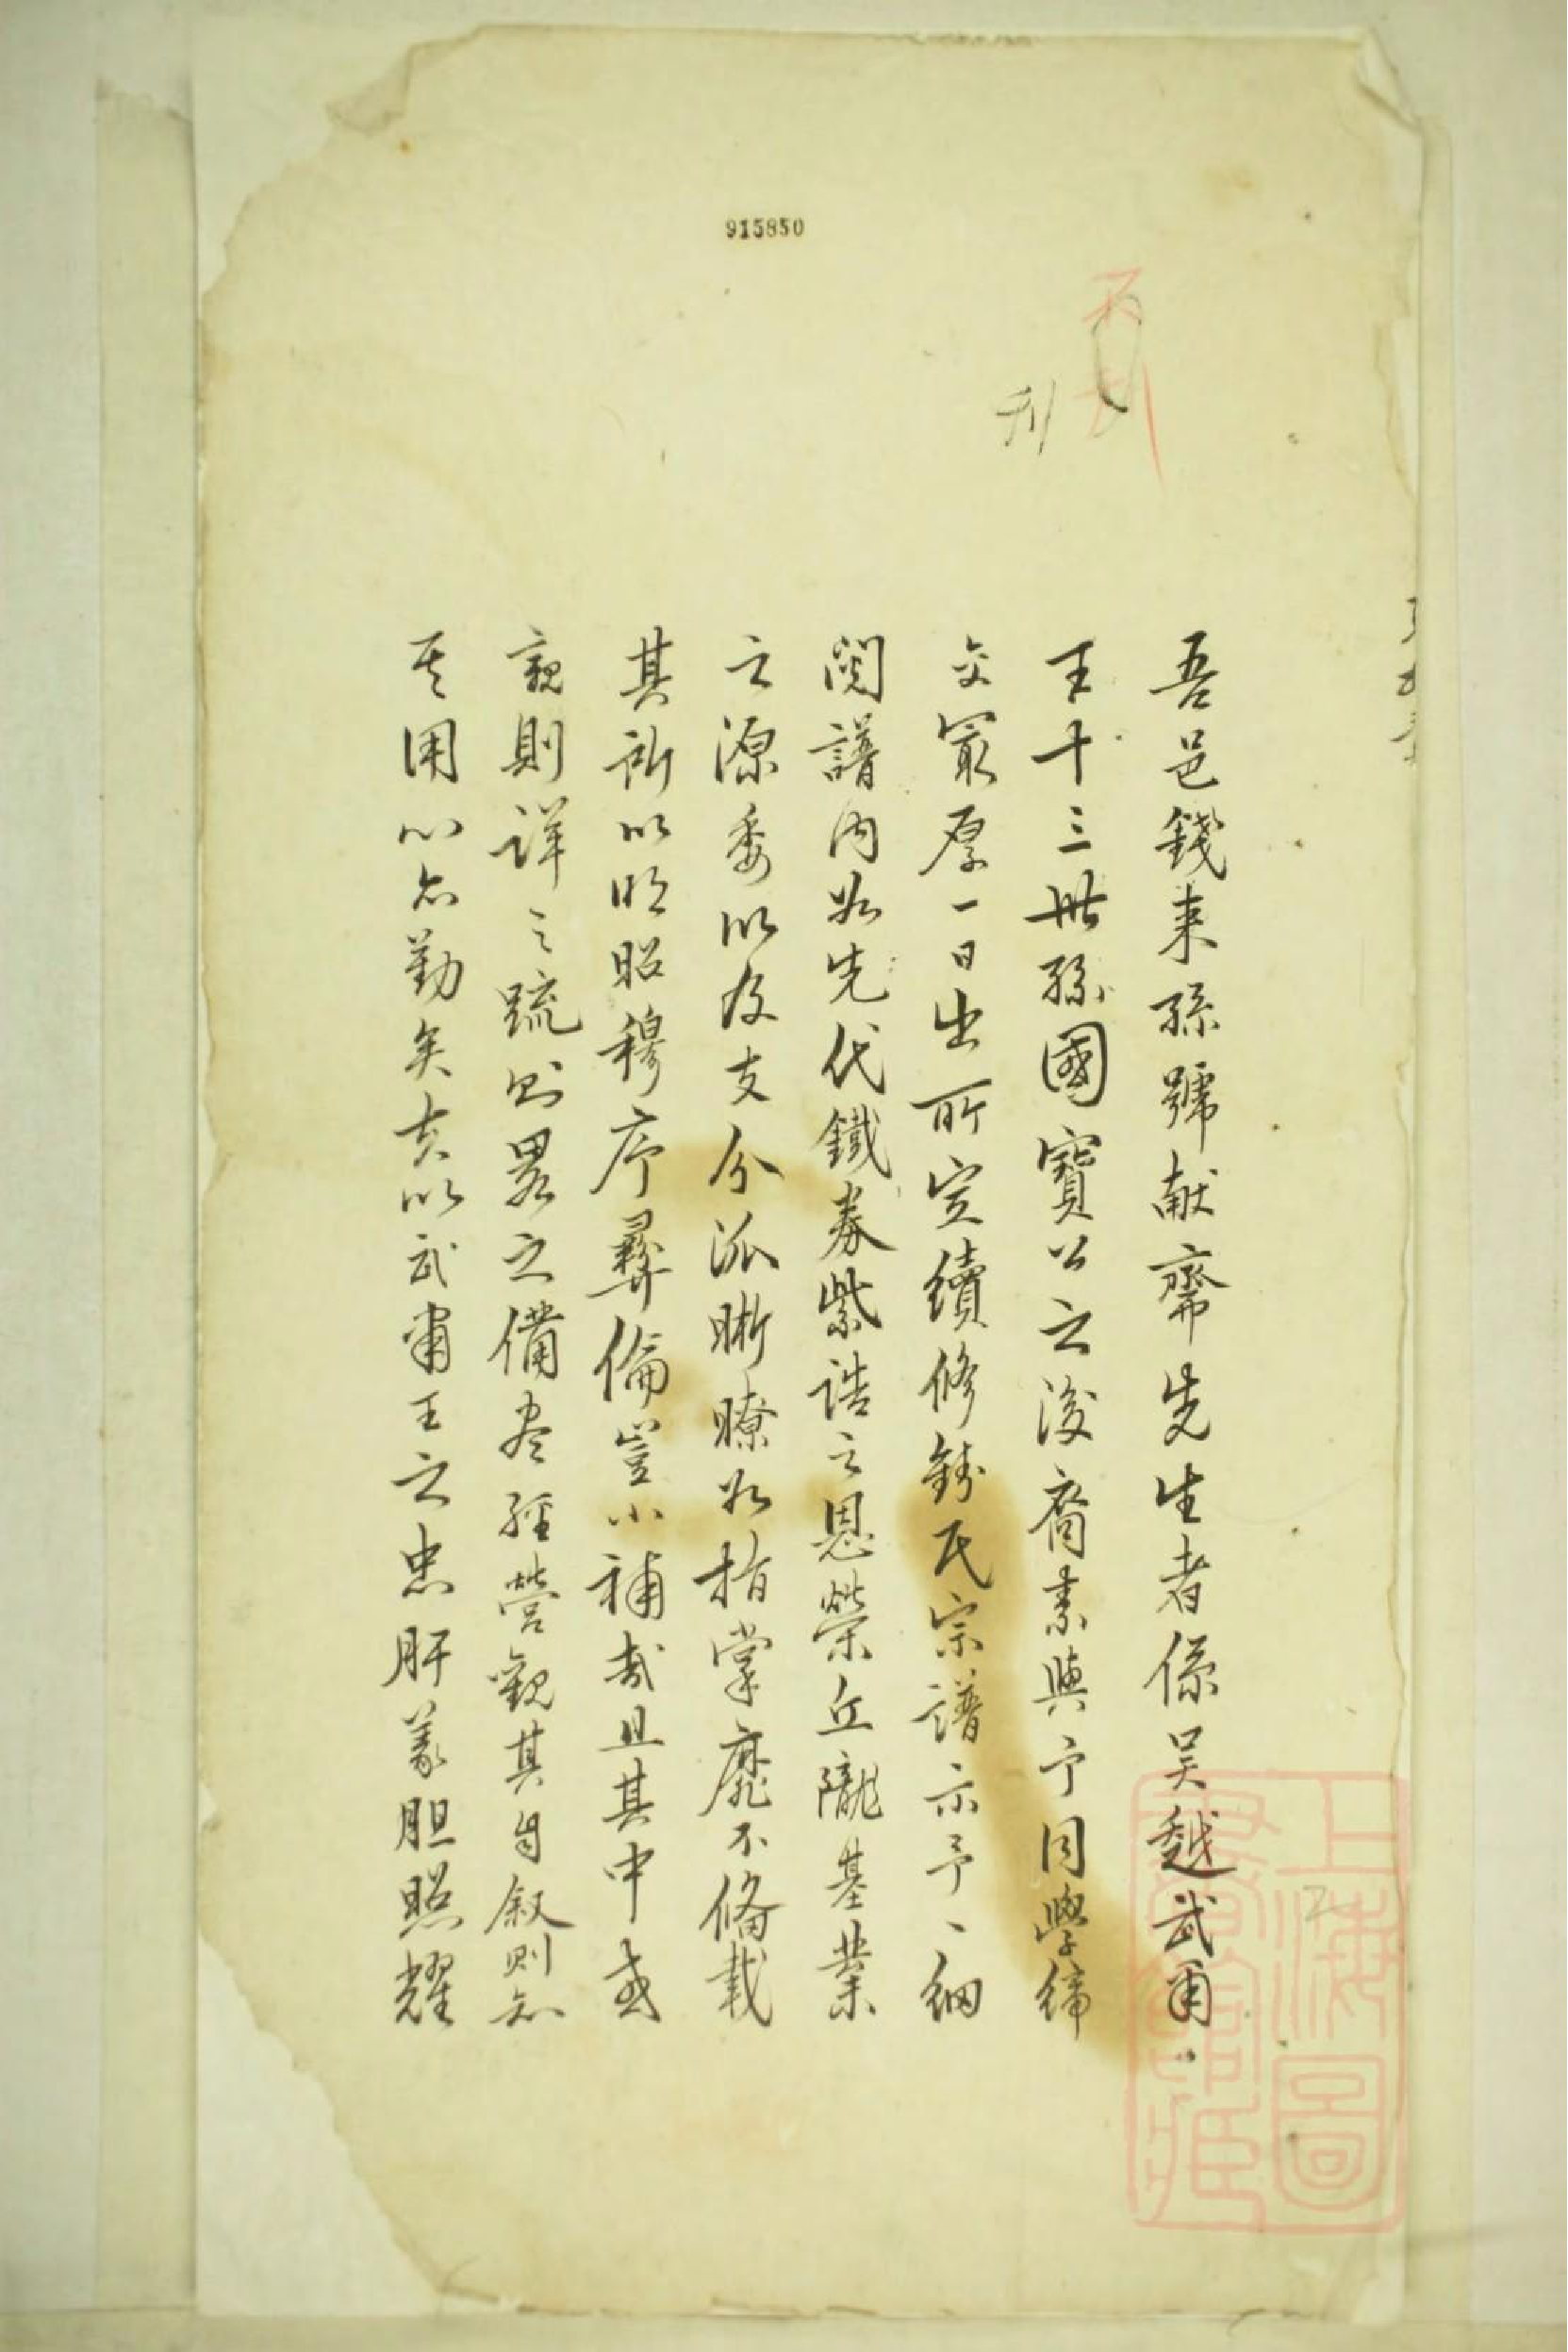 915850
不刊
刊
吾邑錢来孫號献齋先生者係吴越武肅
王十三世孫國寶公之後裔素與予同學締
交最厚一日出所定續修錢氏宗譜示予、細
閱譜内如先代鐵券紫誥之恩榮丘隴基業
之源委以及支分派晰瞭如指掌靡不俻載
其所以明昭穆序彝倫豈小補哉且其中或
親則詳之疏則畧之備尽經營觀其自叙則知
其用心亦勤矣夫以武肅王之忠肝義胆照耀
上海圖書館藏